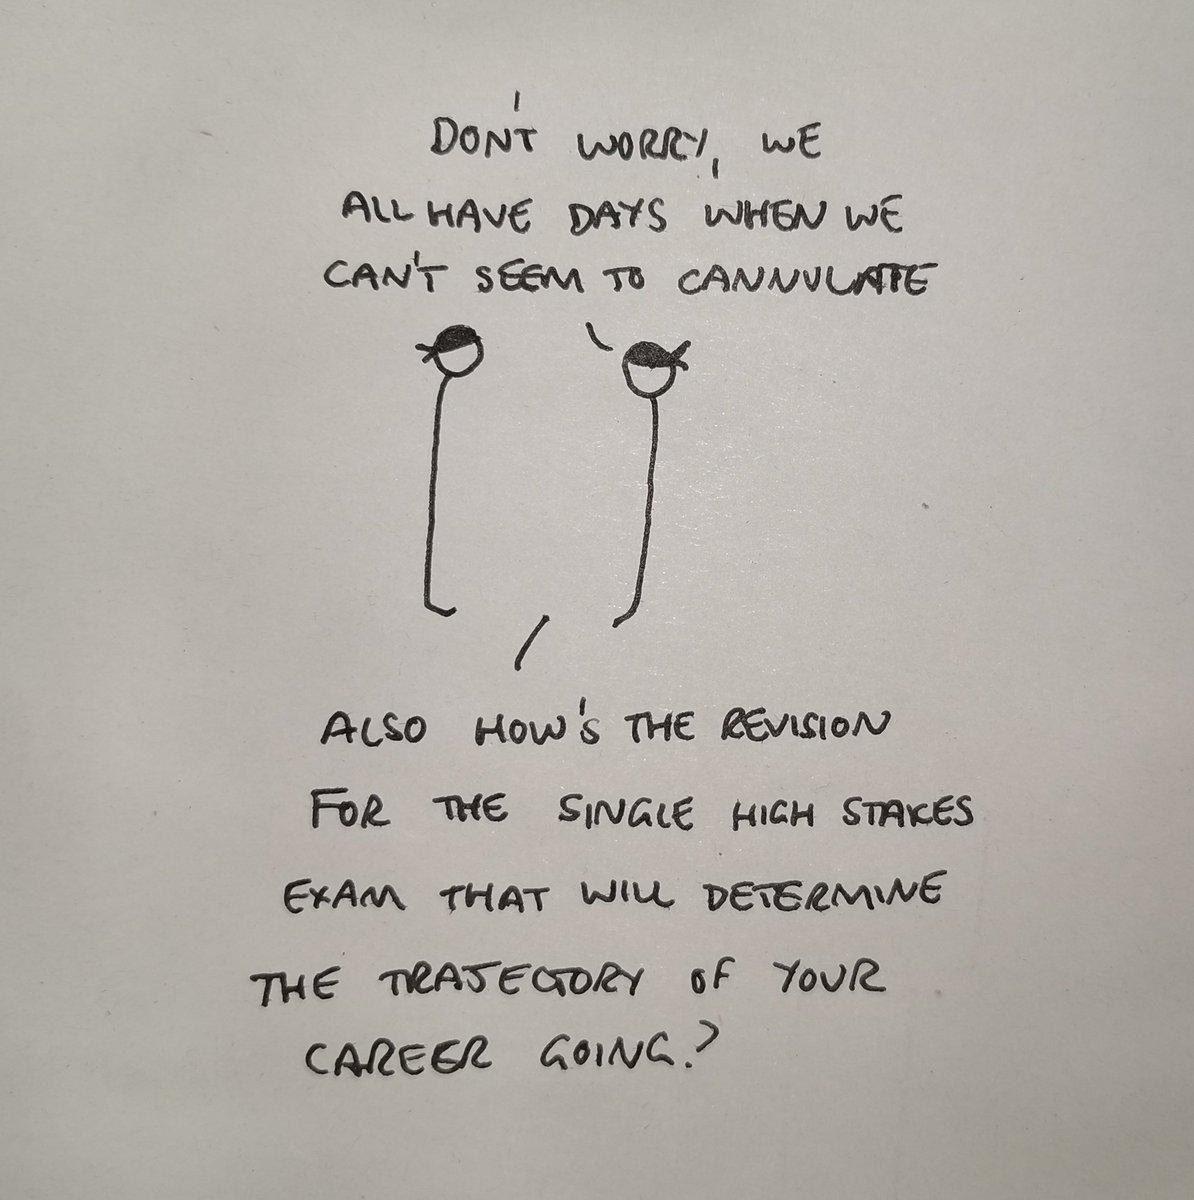 DON'T WORRY, WE
ALL HAVE DAYS WHEN WE
CAN'T SEEM TO CANNULATE
ALSO HOW'S THE REVISION
FOR THE SINGLE HIGH STAKES
EXAM THAT WILL DETERMINE
THE TRAJECTORY OF YOUR
CAREER GOING?